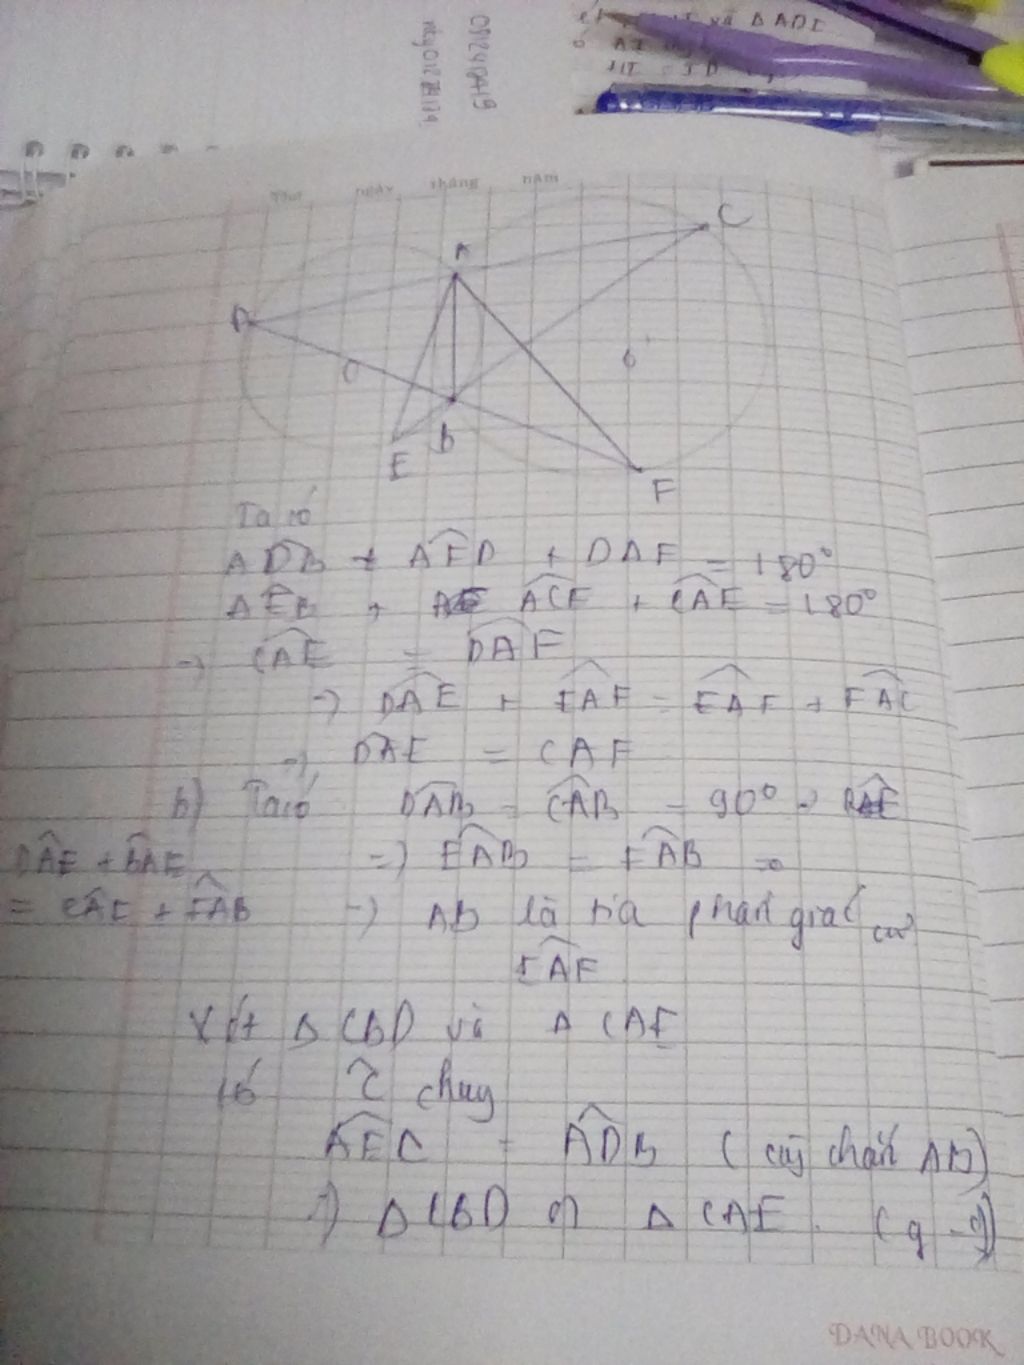 Thứ ngày tháng năm
A
C
D
O
O'
B
E
F
Ta có
ADB + AFD + DAF = 180°
AEB + ACE + CAE = 180°
=> CAE = DAF
=> DAE + EAF = EAF + FAC
=> DAE = CAF
b) Ta có DAB = CAB = 90° =>
DAE + BAE
=> EAB = FAB =>
= CAF + FAB => AB là tia phân giác của
EAF
Xét Δ CBD và Δ CAE
Có C chung
AEC = ADB (cùng chắn AB)
=> Δ CBD ∽ Δ CAE. (g-g)
DANA BOOK